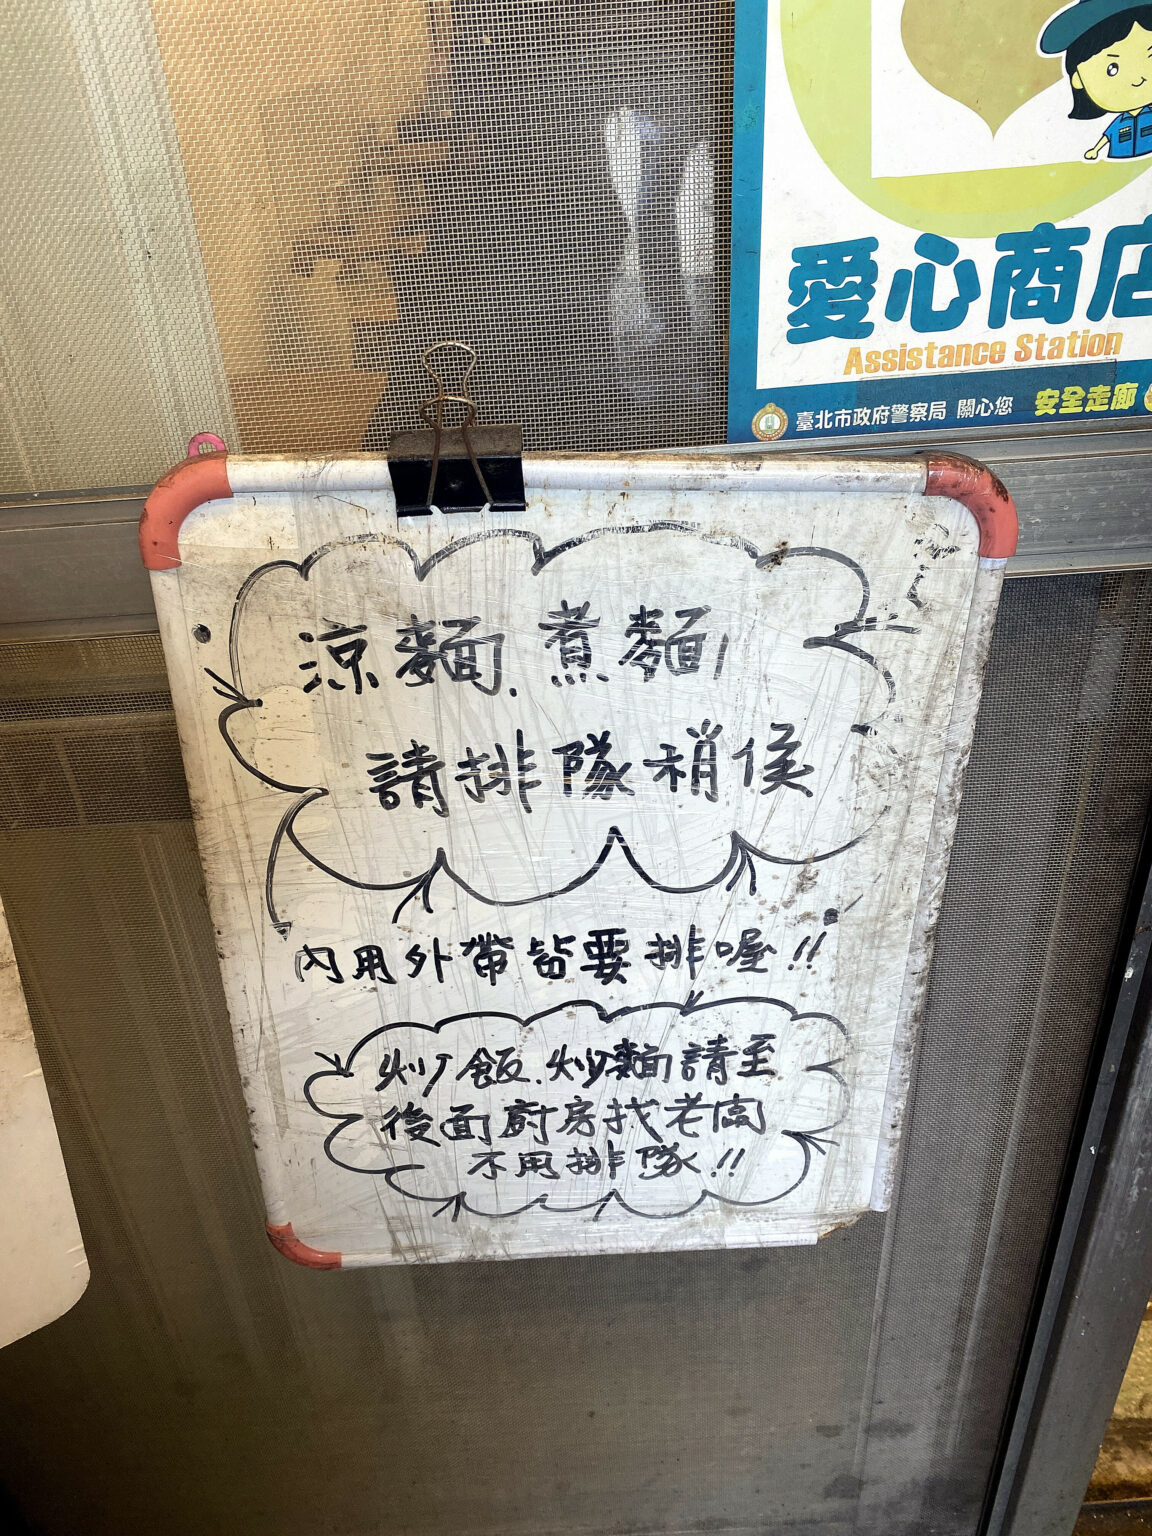 愛心商店
Assistance Station
臺北市政府警察局 關心您 安全走廊
涼麵.煮麵
請排隊稍候
內用外帶皆要排喔!!
炒飯.炒麵請至
後面廚房找老高
不用排隊!!